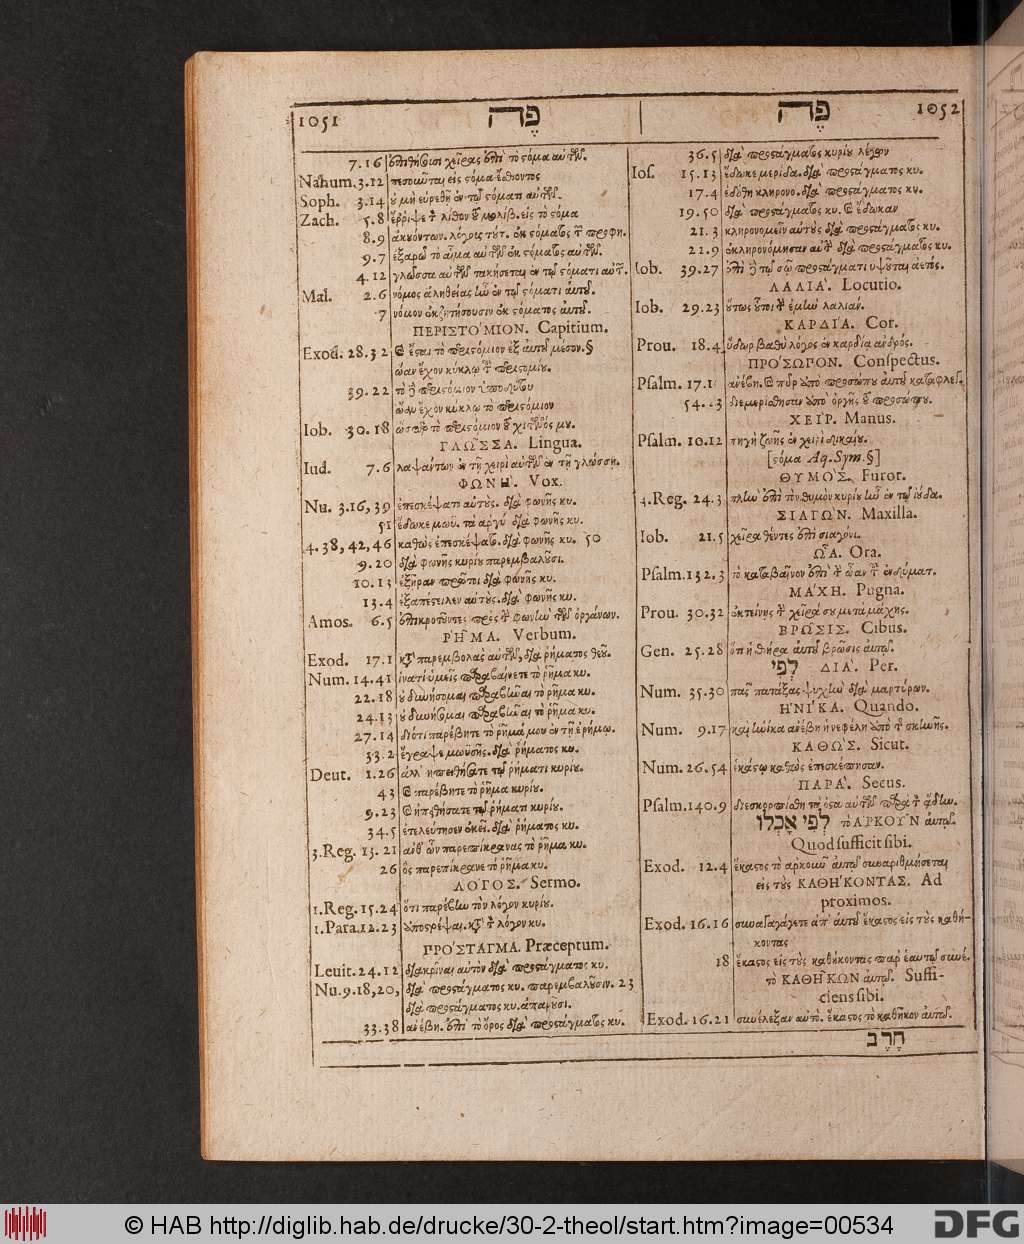 1051 פֶּה
7.16 ἐπιθήσουσι χεῖρας ἐπὶ τὸ στόμα αὐτῶν.
Nahum. 3.12 πεσοῦνται εἰς στόμα ἔσθοντος
Soph. 3.14 οὐ μὴ εὑρεθῇ ἐν τῷ στόματι αὐτῶν.
Zach. 5.8 ἔρριψε τὸν λίθον τοῦ μολίβ. εἰς τὸ στόμα
8.9 ἀκουόντων. λόγους τούτ. ἐκ στόματος τῶν προφη.
9.7 ἐξαρῶ τὸ αἷμα αὐτῶν ἐκ στόματος αὐτῶν.
4.12 γλῶσσα αὐτῶν τακήσεται ἐν τῷ στόματι αὐτῶν.
Mal. 2.6 νόμος ἀληθείας ἦν ἐν τῷ στόματι αὐτοῦ.
7 νόμον ἐκζητήσουσιν ἐκ στόματος αὐτοῦ.
ΠΕΡΙΣΤΟΜΙΟΝ. Capitium.
Exod. 28.32 καὶ ἔσται τὸ περιστόμιον ἐξ αὐτοῦ μέσον.§
ὤαν ἔχον κύκλῳ τοῦ περιστομίου.
39.22 τὸ περιστόμιον ὑποδύτου
ὤαν ἔχον κύκλῳ τὸ περιστόμιον
Iob. 30.18 ὥσπερ τὸ περιστόμιον τοῦ χιτῶνός μου.
ΓΛΩΣΣΑ. Lingua.
Iud. 7.6 λαψάντων ἐν τῇ χειρὶ αὐτῶν ἐν τῇ γλώσσῃ.
ΦΩΝΗ. Vox.
Nu. 3.16, 39 ἐπεσκέψατο αὐτοὺς. διὰ φωνῆς κυ.
51 ἔδωκε μωϋ. τὰ ἀργύ διὰ φωνῆς κυ.
4. 38, 42, 46 καθὼς ἐπεσκέψατο. διὰ φωνῆς κυ. 50
9.20 διὰ φωνῆς κυρίου παρεμβαλοῦσι.
10.13 ἐξῆραν πρῶτοι διὰ φωνῆς κυ.
13.4 ἐξαπέστειλεν αὐτοὺς. διὰ φωνῆς κυ.
Amos. 6.5 ἐπικροτοῦντες πρὸς τὴν φωνὴν τῶν ὀργάνων.
ΡΗΜΑ. Verbum.
Exod. 17.1 κατὰ παρεμβολὰς αὐτῶν, διὰ ῥήματος θεοῦ.
Num. 14.41 ἱνατί ὑμεῖς παραβαίνετε τὸ ῥῆμα κυ.
22.18 οὐ δυνήσομαι παραβῆναι τὸ ῥῆμα κυ.
24.13 οὐ δυνήσομαι παραβῆναι τὸ ῥῆμα κυ.
27.14 διότι παρέβητε τὸ ῥῆμά μου ἐν τῇ ἐρήμῳ.
33.2 ἔγραψε μωϋσῆς. διὰ ῥήματος κυ.
Deut. 1.26 ἀλλ' ἠπειθήσατε τῷ ῥήματι κυρίου.
43 καὶ παρέβητε τὸ ῥῆμα κυρίου.
9.23 καὶ ἠπειθήσατε τῷ ῥήματι κυρίου.
34.5 ἐτελεύτησεν ἐκεῖ. διὰ ῥήματος κυ.
3.Reg. 13.21 ἀνθ' ὧν παρεπίκρανας τὸ ῥῆμα κυ.
26 ὃς παρεπίκρανε τὸ ῥῆμα κυ.
ΛΟΓΟΣ. Sermo.
1.Reg. 15.24 ὅτι παρέβην τὸν λόγον κυρίου.
1.Para. 12.23 ὑποστρέψαι. κατὰ τὸν λόγον κυ.
ΠΡΟΣΤΑΓΜΑ. Præceptum.
Leuit. 24.12 διακρῖναι αὐτὸν διὰ προστάγματος κυ.
Nu. 9.18, 20, διὰ προστάγματος κυ. παρεμβαλοῦσιν. 23
διὰ προστάγματος κυ. ἀπαροῦσι.
33.38 ἀνέβη. ἐπὶ τὸ ὄρος διὰ προστάγματος κυ.
פֶּה 1052
36.5 διὰ προστάγματος κυρίου λέγων
Ios. 15.13 ἔδωκε μερίδα. διὰ προστάγματος κυ.
17.4 ἐδόθη κληρονο. διὰ προστάγματος κυ.
19.50 διὰ προστάγματος κυ. καὶ ἔδωκαν
21.3 κληρονομεῖν αὐτοὺς διὰ προστάγματος κυ.
22.9 ἐκληρονόμησαν αὐτὴν διὰ προστάγματος κυ.
Iob. 39.27 ἐπὶ δὲ τῷ σῷ προστάγματι ὑψοῦται ἀετός.
ΛΑΛΙΑ. Locutio.
Iob. 29.23 οὕτως οὗτοι τὴν ἐμὴν λαλιάν.
ΚΑΡΔΙΑ. Cor.
Prou. 18.4 ὕδωρ βαθὺ λόγος ἐν καρδίᾳ ἀνδρός.
ΠΡΟΣΩΡΟΝ. Conspectus.
Psalm. 17.1 ἀνέβη. καὶ πῦρ ἀπὸ προσώπου αὐτοῦ καταφλεξ.
54. 23 διεμερίσθησαν ἀπὸ ὀργῆς τοῦ προσώπου.
ΧΕΙΡ. Manus.
Psalm. 10.12 πηγὴ ζωῆς ἐν χειρὶ δικαίου.
[στόμα Aq. Sym. §]
ΘΥΜΟΣ. Furor.
4.Reg. 24.3 πλὴν ἐπὶ τὸν θυμὸν κυρίου ἦν ἐν τῷ ἰούδα.
ΣΙΑΓΩΝ. Maxilla.
Iob. 21.5 χεῖρα θέντες ἐπὶ σιαγόνι.
ΩΑ. Ora.
Psalm. 132.3 τὸ καταβαῖνον ἐπὶ τὴν ὤαν τοῦ ἐνδύματ.
ΜΑΧΗ. Pugna.
Prou. 30.32 ἐκτείνῃς τὴν χεῖρά σου μετὰ μάχης.
ΒΡΩΣΙΣ. Cibus.
Gen. 25.28 ὅτι ἡ θήρα αὐτοῦ βρῶσις αὐτῷ.
לְפִי ΔΙΑ. Per.
Num. 35.30 πᾶς πατάξας ψυχὴν διὰ μαρτύρων.
ΗΝΙΚΑ. Quando.
Num. 9.17 καὶ ἡνίκα ἀνέβη ἡ νεφέλη ἀπὸ τῆς σκηνῆς.
ΚΑΘΩΣ. Sicut.
Num. 26.54 ἑκάστῳ καθὼς ἐπεσκέπησαν.
ΠΑΡΑ. Secus.
Psalm. 140.9 διεσκορπίσθη τὰ ὀστᾶ αὐτῶν παρὰ τὸν ᾅδην.
לְפִי אָכְלוֹ τὸ ΑΡΚΟΥΝ αὐτῷ.
Quod sufficit sibi.
Exod. 12.4 ἕκαστος τὸ ἀρκοῦν αὐτῷ συναριθμήσεται
εἰς τοὺς ΚΑΘΗΚΟΝΤΑΣ. Ad
proximos.
Exod. 16.16 συναγάγετε ἀπ' αὐτοῦ ἕκαστος εἰς τοὺς καθή-
κοντας
18 ἕκαστος εἰς τοὺς καθήκοντας παρ' ἑαυτῷ συνέ.
τὸ ΚΑΘΗΚΩΝ αὐτῷ. Suffi-
ciens sibi.
Exod. 16.21 συνέλεξαν αὐτὸ. ἕκαστος τὸ καθῆκον αὐτῷ.
חֶרֶב
© HAB http://diglib.hab.de/drucke/30-2-theol/start.htm?image=00534
DFG